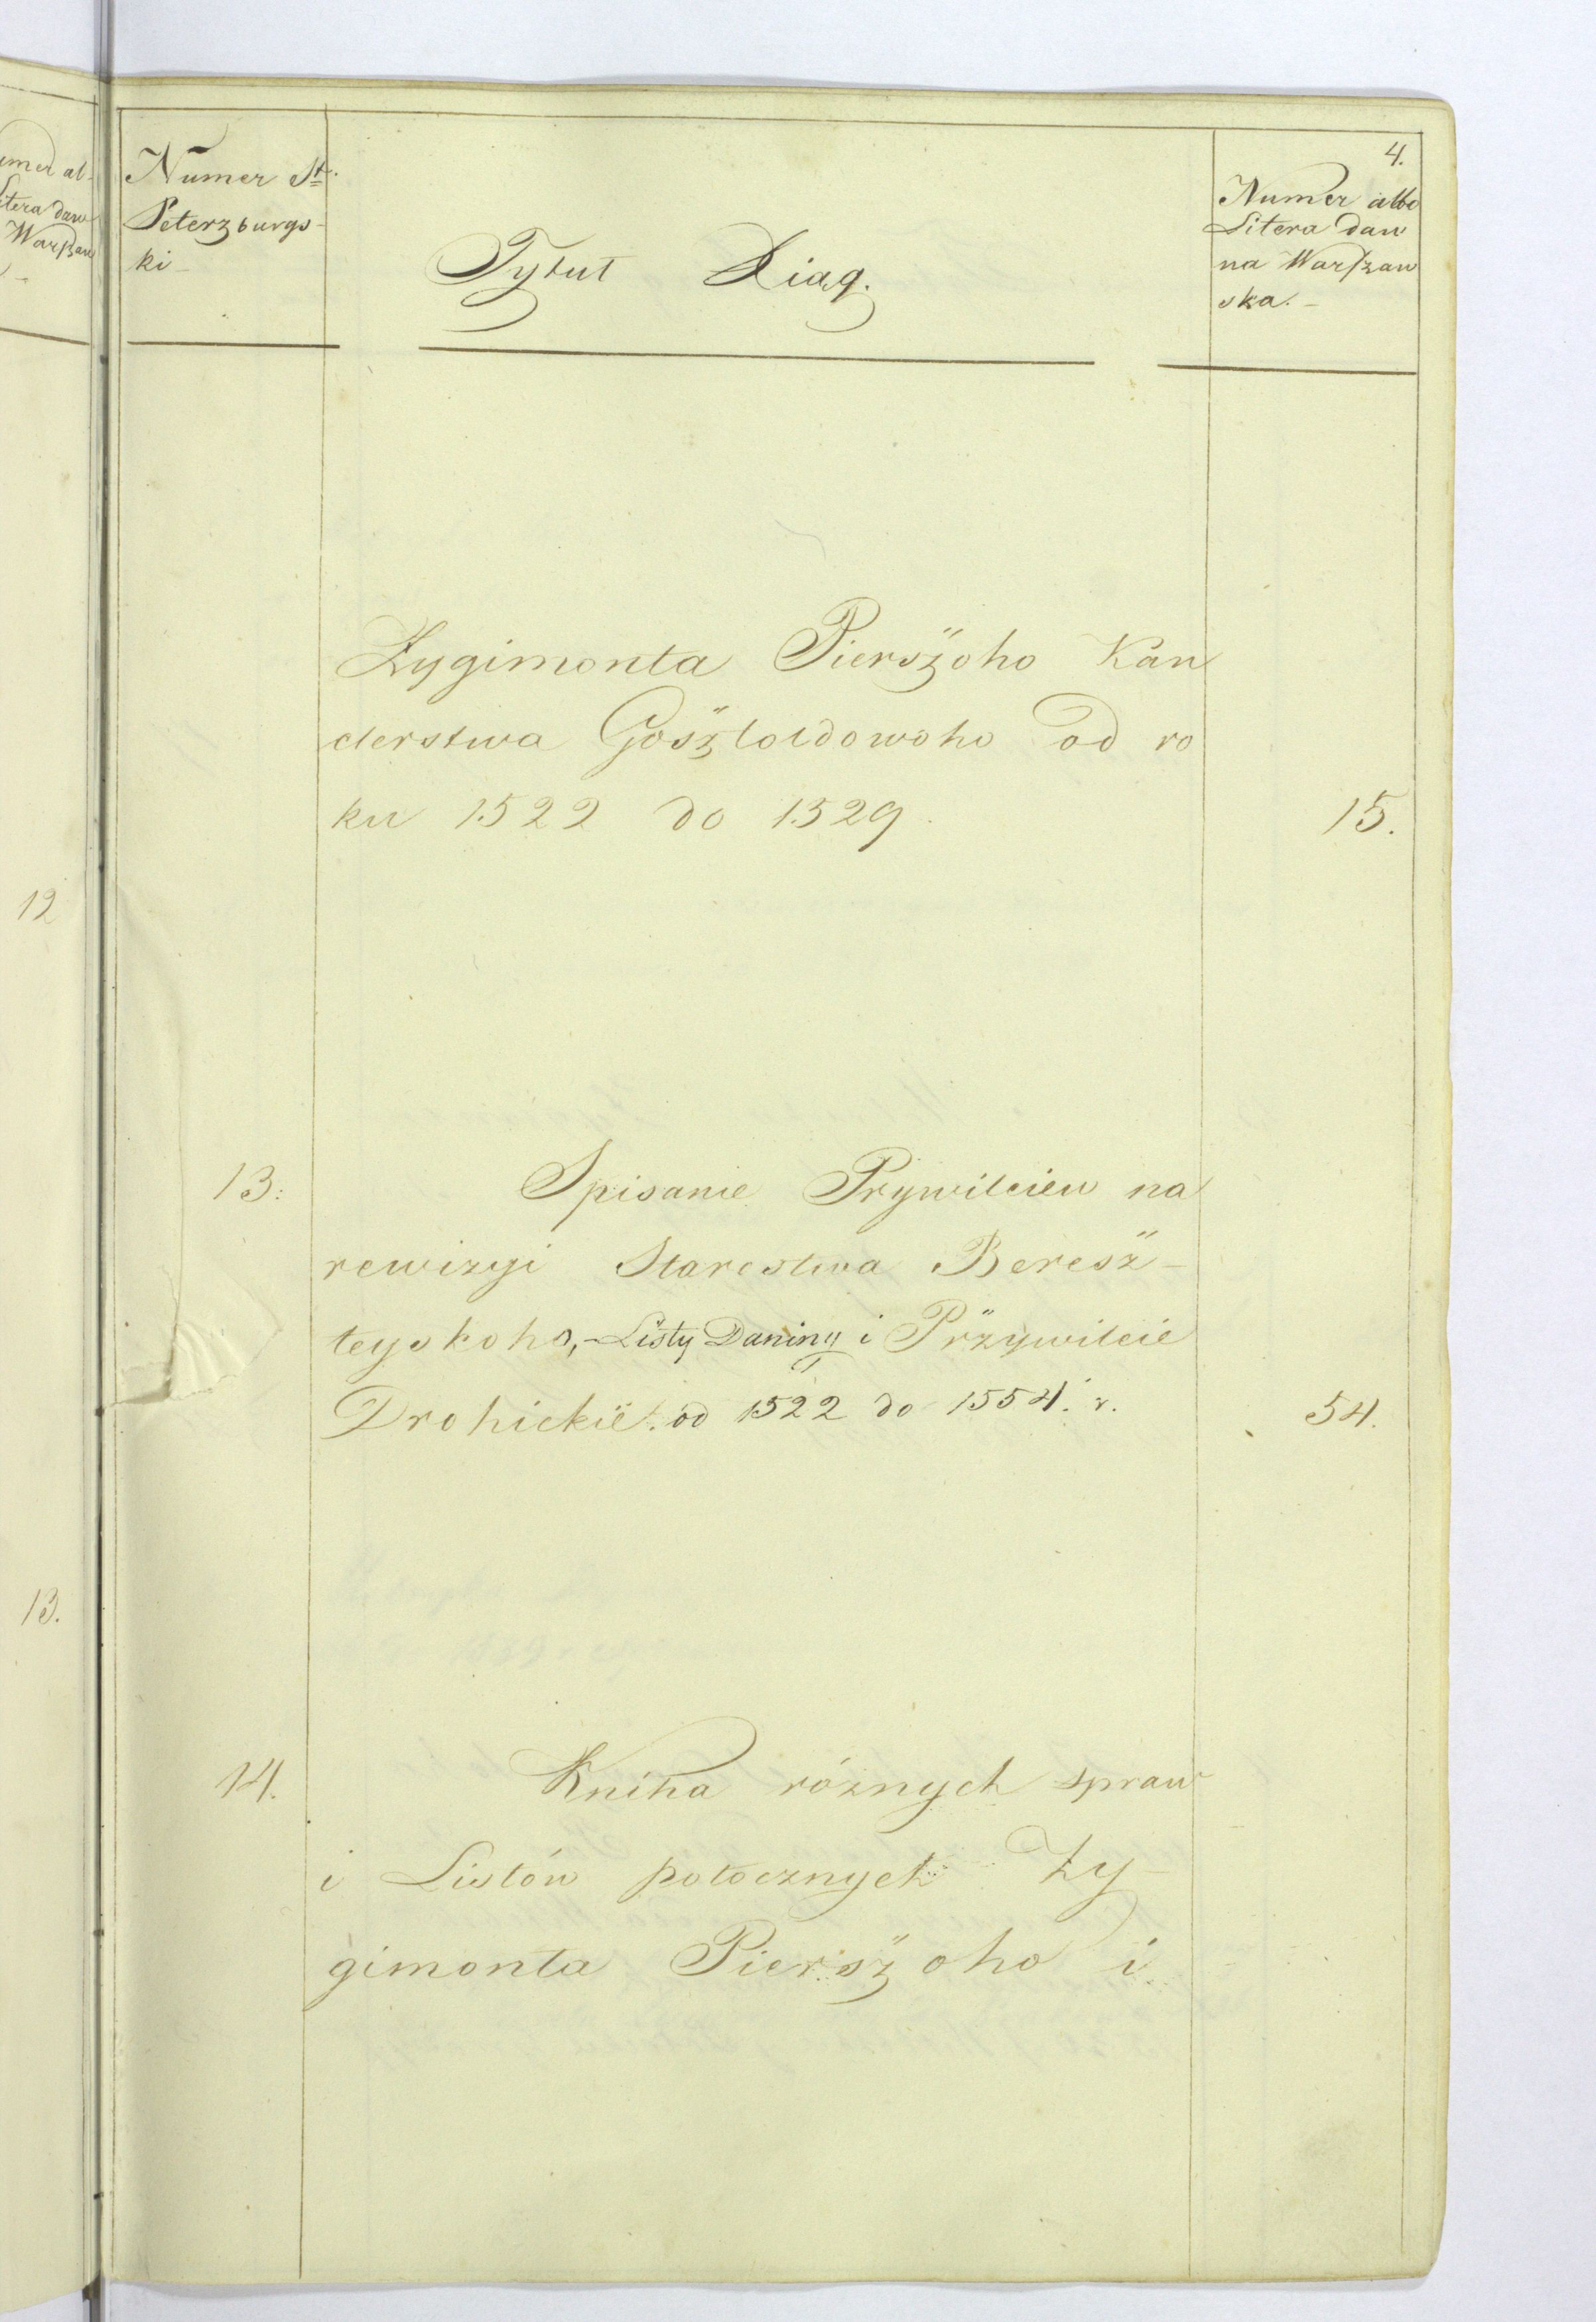 4.
Numer St.
Peterzburgs-
ki-
Tytuł Xiąg.
Numer albo
Litera daw
na Warszaw
ska.-
Zygimonta Pierszoho Kan
clerstwa Gosztoldowoho od ro
ku 1522 do 1529.
15.
13:
Spisanie Prywileiew na
rewizyi Starostwa Beresz-
teyskoho,-Listy Daniny i Przywileie
Drohickie. od 1522 do 1554. r.
54.
14.
Kniha różnych spraw
i Listów potocznych Zy-
gimonta Pierszoho i
12
13.